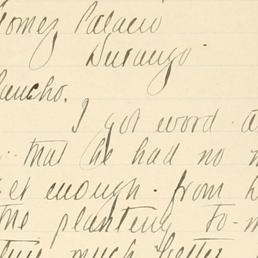 Gomez Palacio
Durango.
Rancho.
I got word a
that he had no m
et enough. from h
the planting to-m
much better